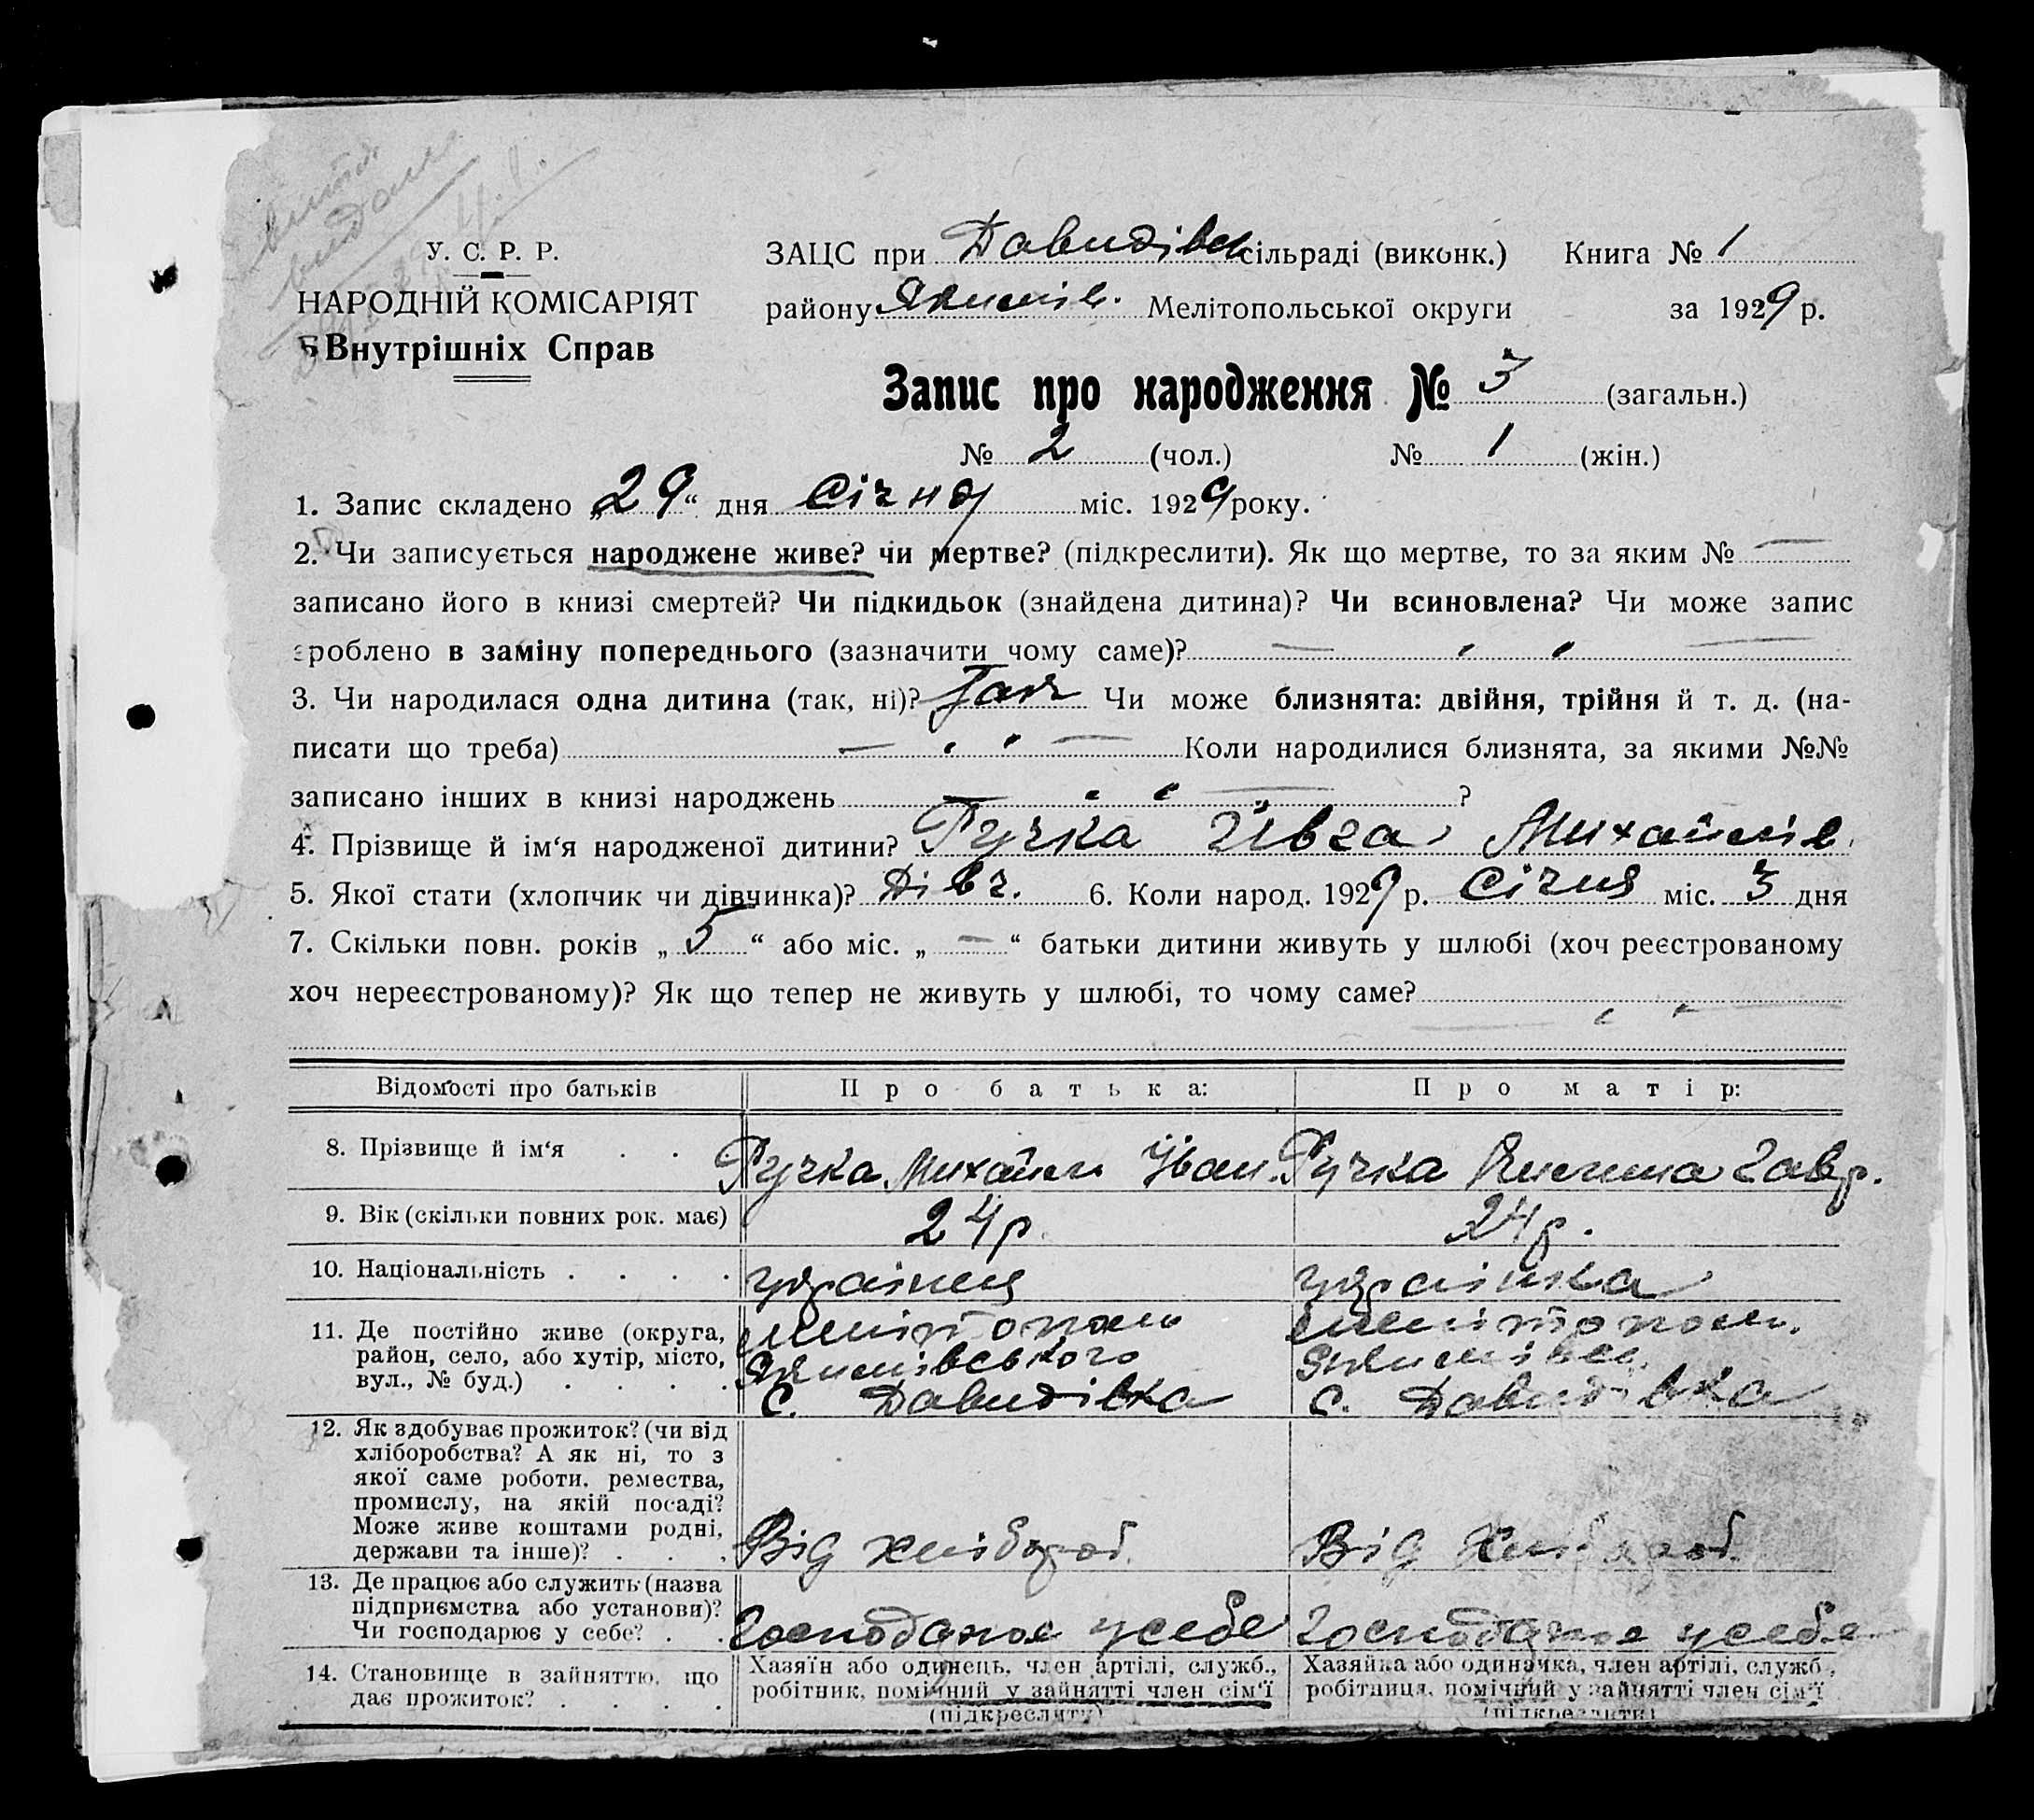 У. С. Р. Р.
НАРОДНІЙ КОМІСАРІЯТ
Внутрішніх Справ
ЗАЦС при Давидівск сільраді (виконк.) Книга № 1
району Якимів. Мелітопольської округи за 1929 р.
Запис про народження № 3 (загальн.)
№ 2 (чол.) № 1 (жін.)
1. Запис складено „29“ дня Січня міс. 1929 року.
2. Чи записується народжене живе? чи мертве? (підкреслити). Як що мертве, то за яким № —
записано його в книзі смертей? Чи підкидьок (знайдена дитина)? Чи всиновлена? Чи може запис
зроблено в заміну попереднього (зазначити чому саме)? — „ —
3. Чи народилася одна дитина (так, ні)? Так Чи може близнята: двійня, трійня й т. д. (на-
писати що треба) — „ — Коли народилися близнята, за якими №№
записано інших в книзі народжень — „ — ?
4. Прізвище й ім‘я народженої дитини? Гучка Ївга Михайлів.
5. Якої стати (хлопчик чи дівчинка)? Дівч. 6. Коли народ. 1929 р. Січня міс. 3 дня
7. Скільки повн. років „5“ або міс. „—“ батьки дитини живуть у шлюбі (хоч реєстрованому
хоч нереєстрованому)? Як що тепер не живуть у шлюбі, то чому саме?
— „ —
Відомості про батьків Про батька: Про матір:
8. Прізвище й ім‘я . . Гучка Михайло Їван. Гучка Гавр.
9. Вік (скільки повних рок. має) 24 р. 24 р.
10. Національність . . . . українец українка
11. Де постійно живе (округа, Мелітопол. Мелітопол.
район, село, або хутір, місто, Якимівського Якимівськ.
вул., № буд.) . . . . с. Давидівка с. Давидівка
12. Як здобуває прожиток? (чи від
хліборобства? А як ні, то з
якої саме роботи, ремества,
промислу, на якій посаді?
Може живе коштами родні,
держави та інше)? . . . Від хлібороб. Від Хлібороб.
13. Де працює або служить (назва
підприємства або установи)?
Чи господарює у себе? . . Господарює у себе Господарює у себе
14. Становище в зайняттю, що Хазяїн або одинець, член артілі, служб., Хазяйка або одиначка, член артілі, служб.,
дає прожиток? . . . . робітник, помічний у зайнятті член сім‘ї робітниця, помічний у зайнятті член сім‘ї
(підкреслити) (підкреслити)